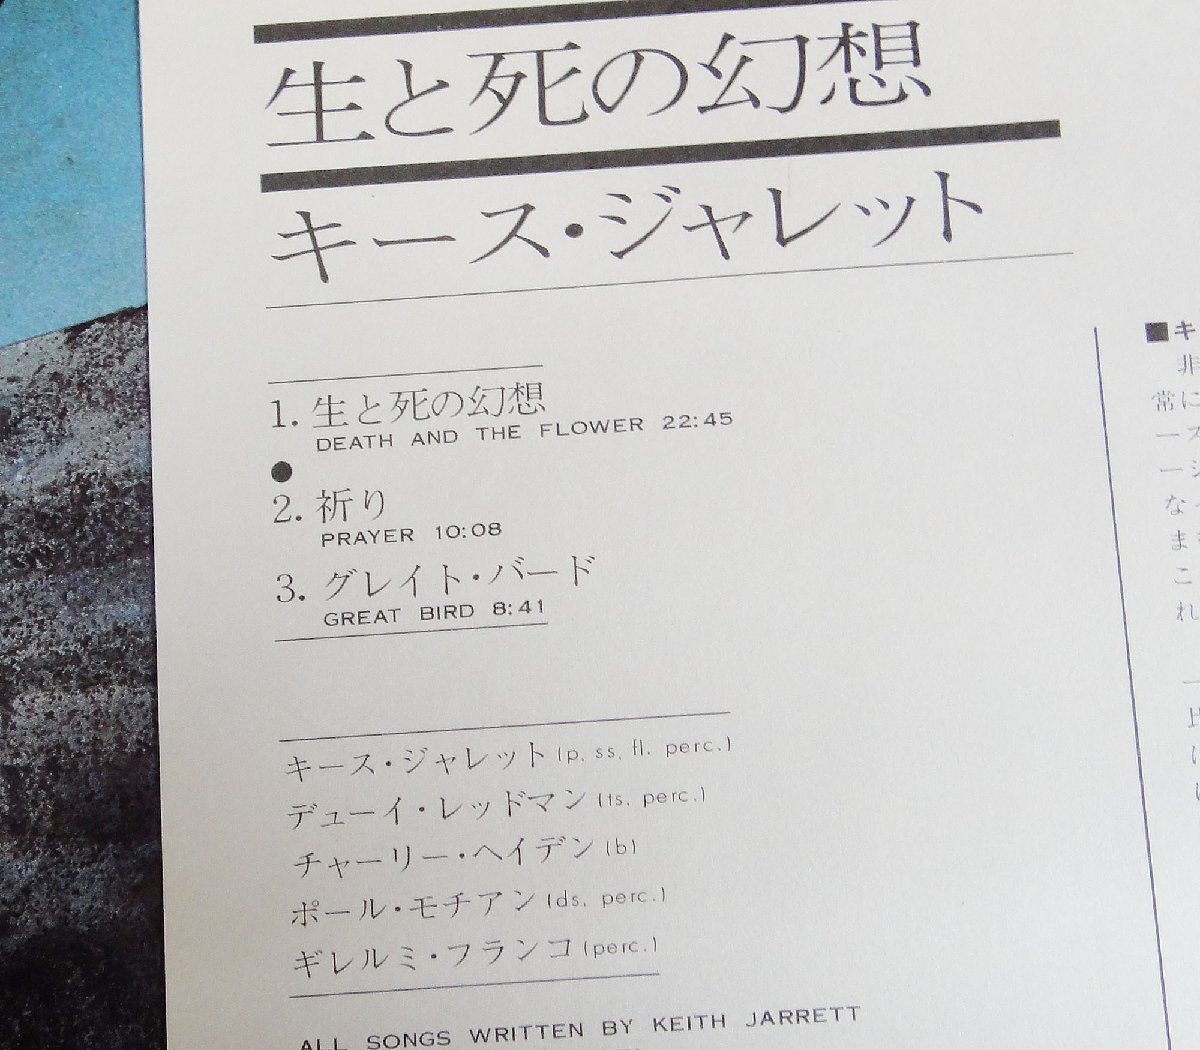 生と死の幻想
キース・ジャレット
1. 生と死の幻想
DEATH AND THE FLOWER 22:45
●
2. 祈り
PRAYER 10:08
3. グレイト・バード
GREAT BIRD 8:41
キース・ジャレット (p, ss, fl. perc.)
デューイ・レッドマン (ts, perc.)
チャーリー・ヘイデン (b)
ポール・モチアン (ds, perc.)
ギレルミ・フランコ (perc.)
ALL SONGS WRITTEN BY KEITH JARRETT
■キ
非
常に
ース
ージ
な
ま
こ
れ